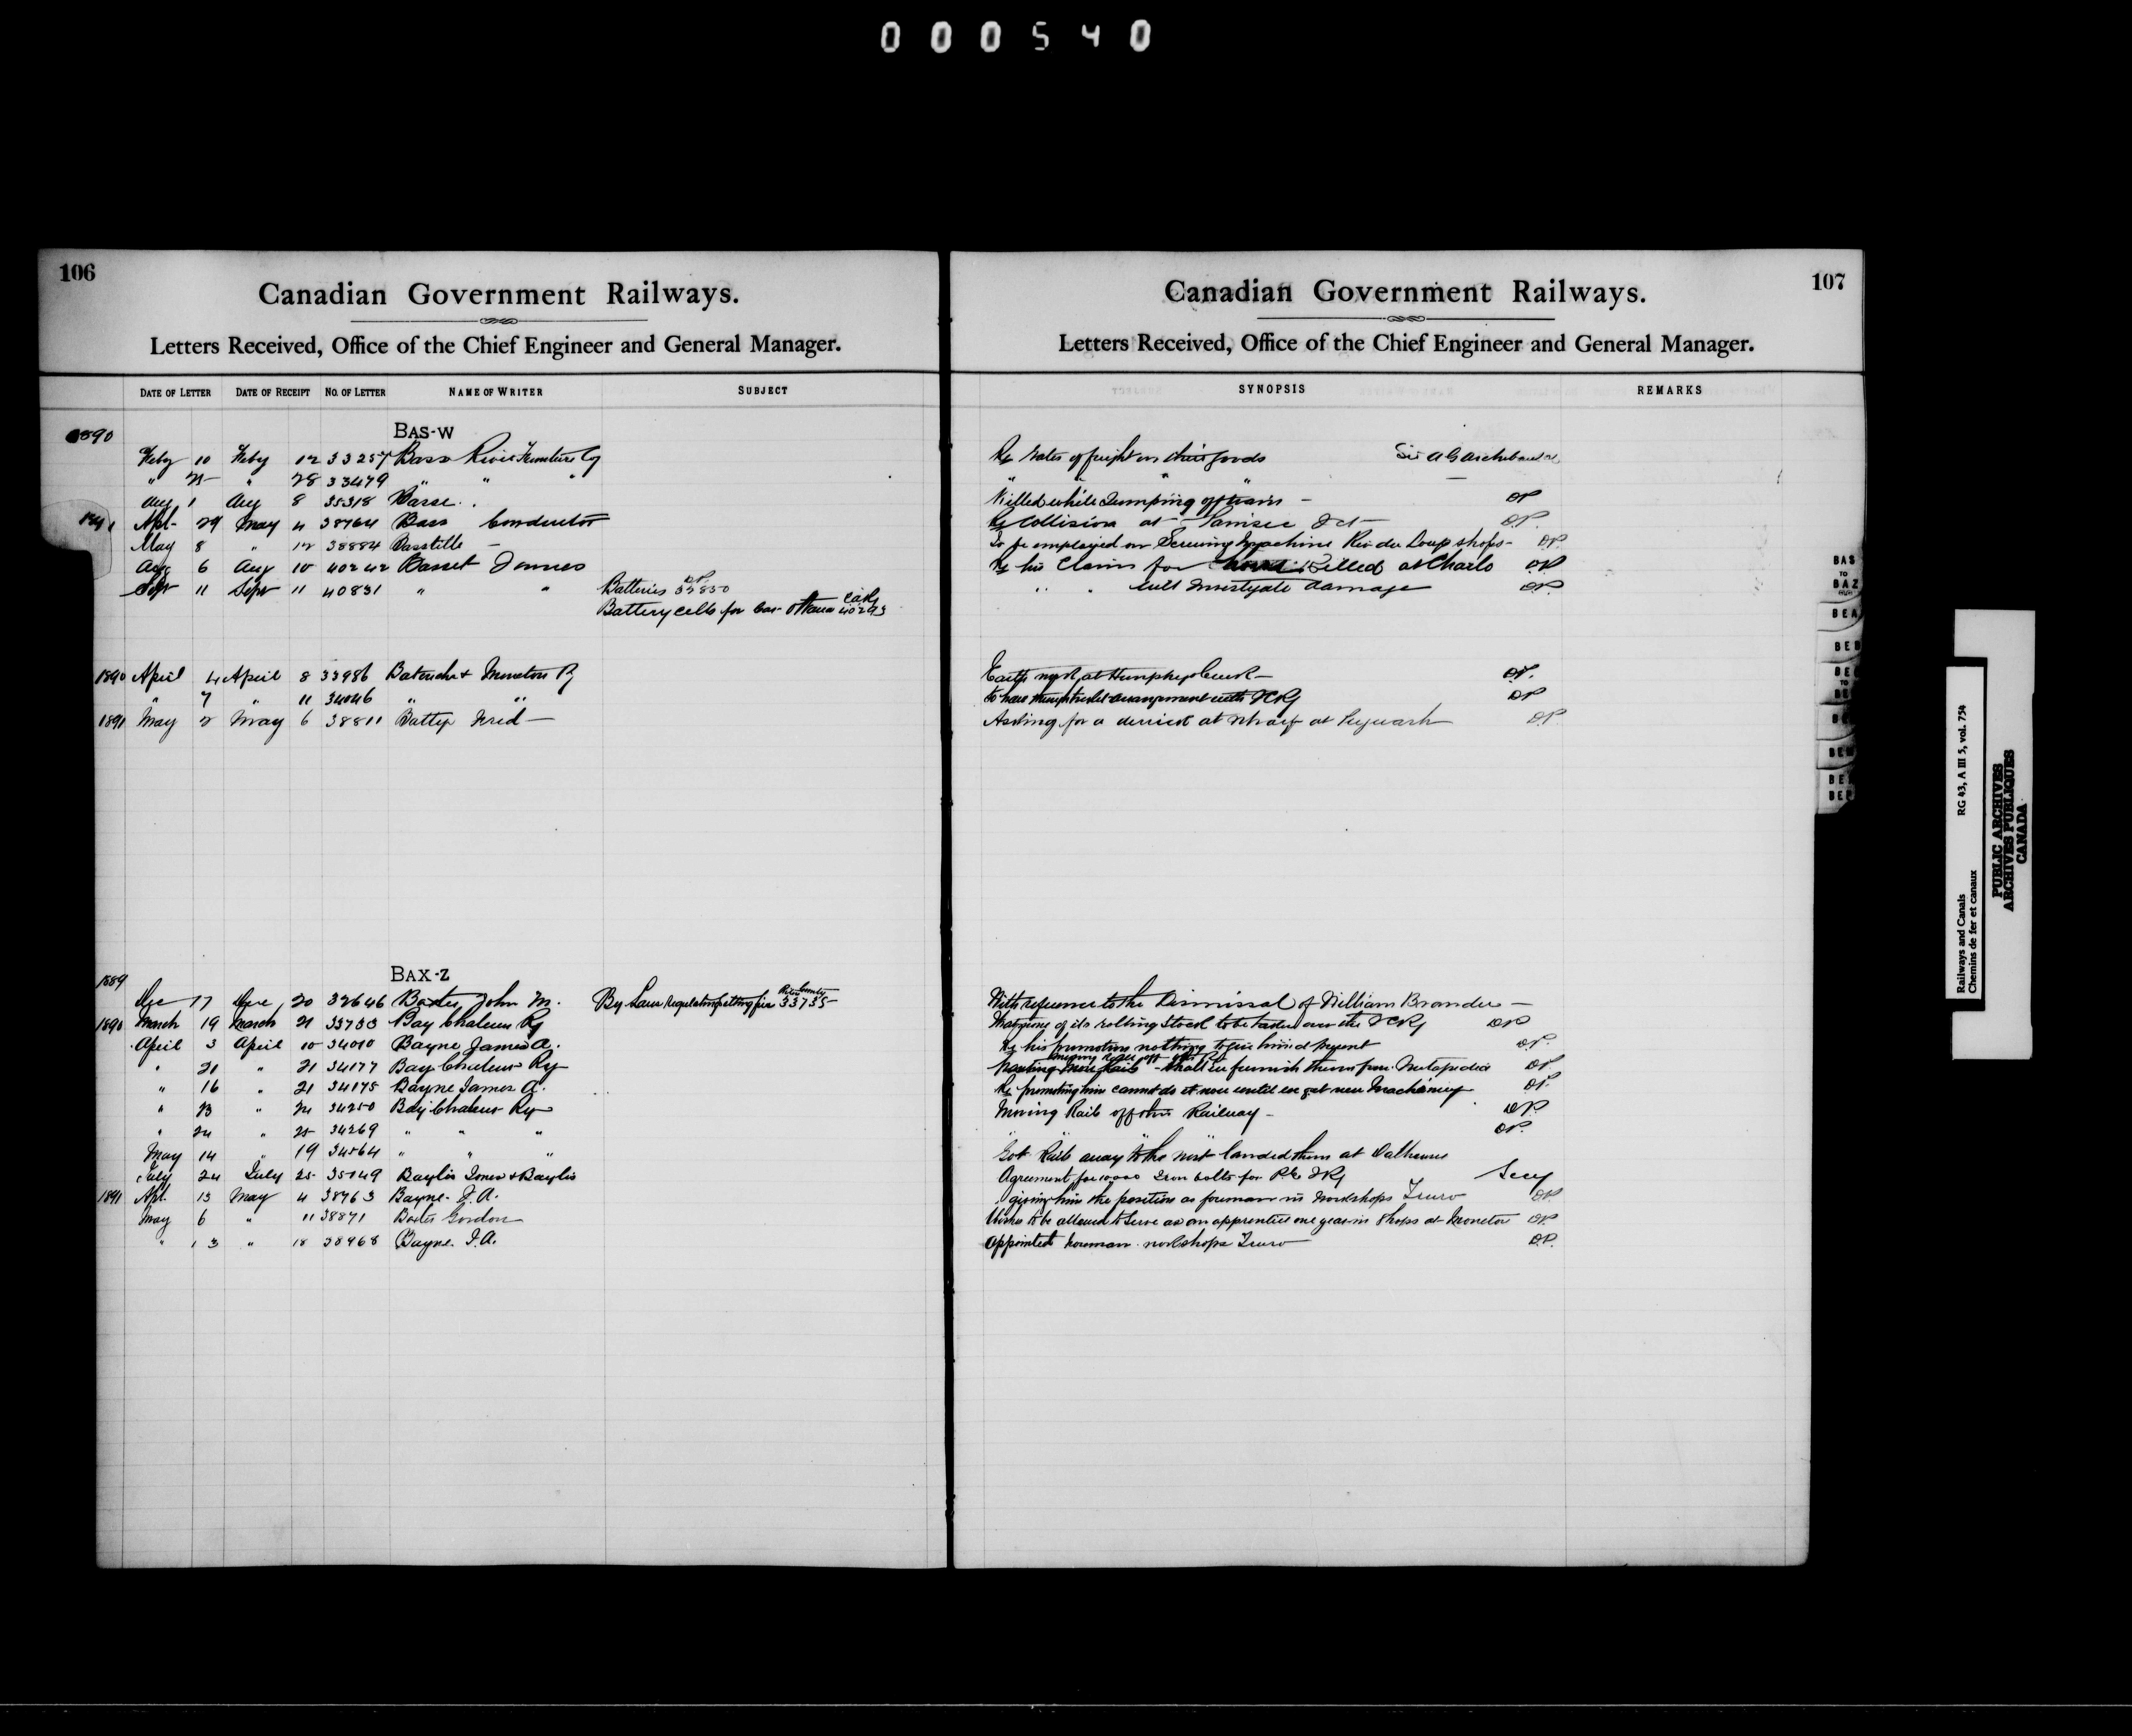 000540
106
Canadian Government Railways.
Letters Received, Office of the Chief Engineer and General Manager.
DATE OF LETTER DATE OF RECEIPT NO. OF LETTER NAME OF WRITER SUBJECT
1890 BAS-W
Feby 10 Feby 12 33257 Bass River Furniture Cy
" 25 " 28 33479 " " "
Aug 1 Aug 8 35318 Basse
1891 Apl- 29 May 4 38764 Bass Conductor
May 8 " 12 38884 Basstille -
Aug 6 Aug 10 40242 Basset James
Sept 11 Sept 11 40831 " " Batteries 32850 DP
Battery cells for car Ottawa 40293
1890 April 4 April 8 33986 Batouche & Moncton Ry
" 7 " 11 34046 " "
1891 May 2 May 6 38811 Batty Fred -
1889 BAX-Z
Dec 17 Dec 20 32646 Baxter John M. By Laws regulating setting fire 33735
1890 March 19 March 21 33733 Bay Chaleur Ry
April 3 April 10 34010 Bayne James A.
" 21 " 21 34177 Bay Chaleur Ry
" 16 " 21 34175 Bayne James A.
" 23 " 24 34250 Bay Chaleur Ry
" 24 " 25 34269 " " "
May 14 " 19 34564 " " "
July 24 July 25 35149 Baylis Jones & Baylis
1891 Apl. 13 May 4 38763 Bayne J. A.
May 6 " 11 38871 Baxter Gordon
" 13 " 18 38968 Bayne J. A.
107
Canadian Government Railways.
Letters Received, Office of the Chief Engineer and General Manager.
SYNOPSIS REMARKS
Re rates of freight on their goods Sir A G Archibald
" " "
Killed while Jumping off train - DP
Re Collision at DP.
To be employed on Screwing Machine Riv du Loup shops- DP.
Re his Claim for killed at Charlo DP
" " will investigate damage DP
DP.
to have through ticket arrangement with ICRy DP
Asking for a derrick at wharf at Pugwash DP
With reference to the Dismissal of William Brander -
of its rolling Stock to be taken over the ICRy DP
Re his promotion nothing to give him at present DP.
shall we furnish them from Metapedia DP
Re promoting him cannot do it now until we get new Machinery DP.
Moving Rails off other Railway - DP
" " " " DP.
Got Rails away landed them at Dalhousie
Agreement for 10,000 Iron bolts for Secy
giving him the position as foreman in Workshops Truro DP
to be allowed to serve as an apprentice one year in Shops at Moncton DP
Appointed foreman workshops Truro DP.
BAS
TO
BAZ
BEA
BED
BEE
TO
Railways and Canals RG 43, A III 5, vol. 754
Chemins de fer et canaux
PUBLIC ARCHIVES
ARCHIVES PUBLIQUES
CANADA